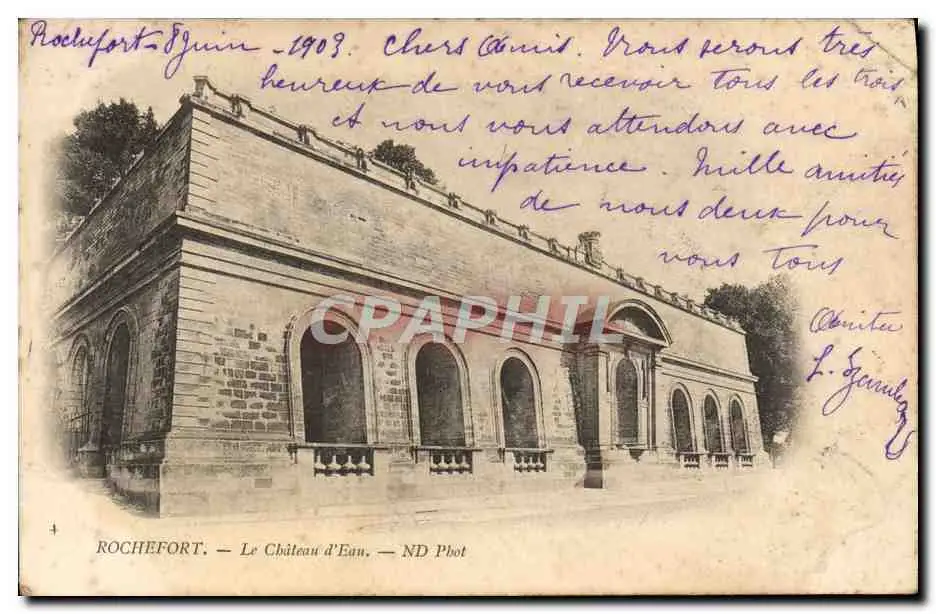 Rochefort 8 Juin - 1903. Chers Amis. Nous serons très
heureux de vous recevoir tous les trois
et nous vous attendons avec
impatience. Mille amitiés
de nous deux pour
vous tous
Amitu
CPAPHIL
4
ROCHEFORT. - Le Château d'Eau. - ND Phot